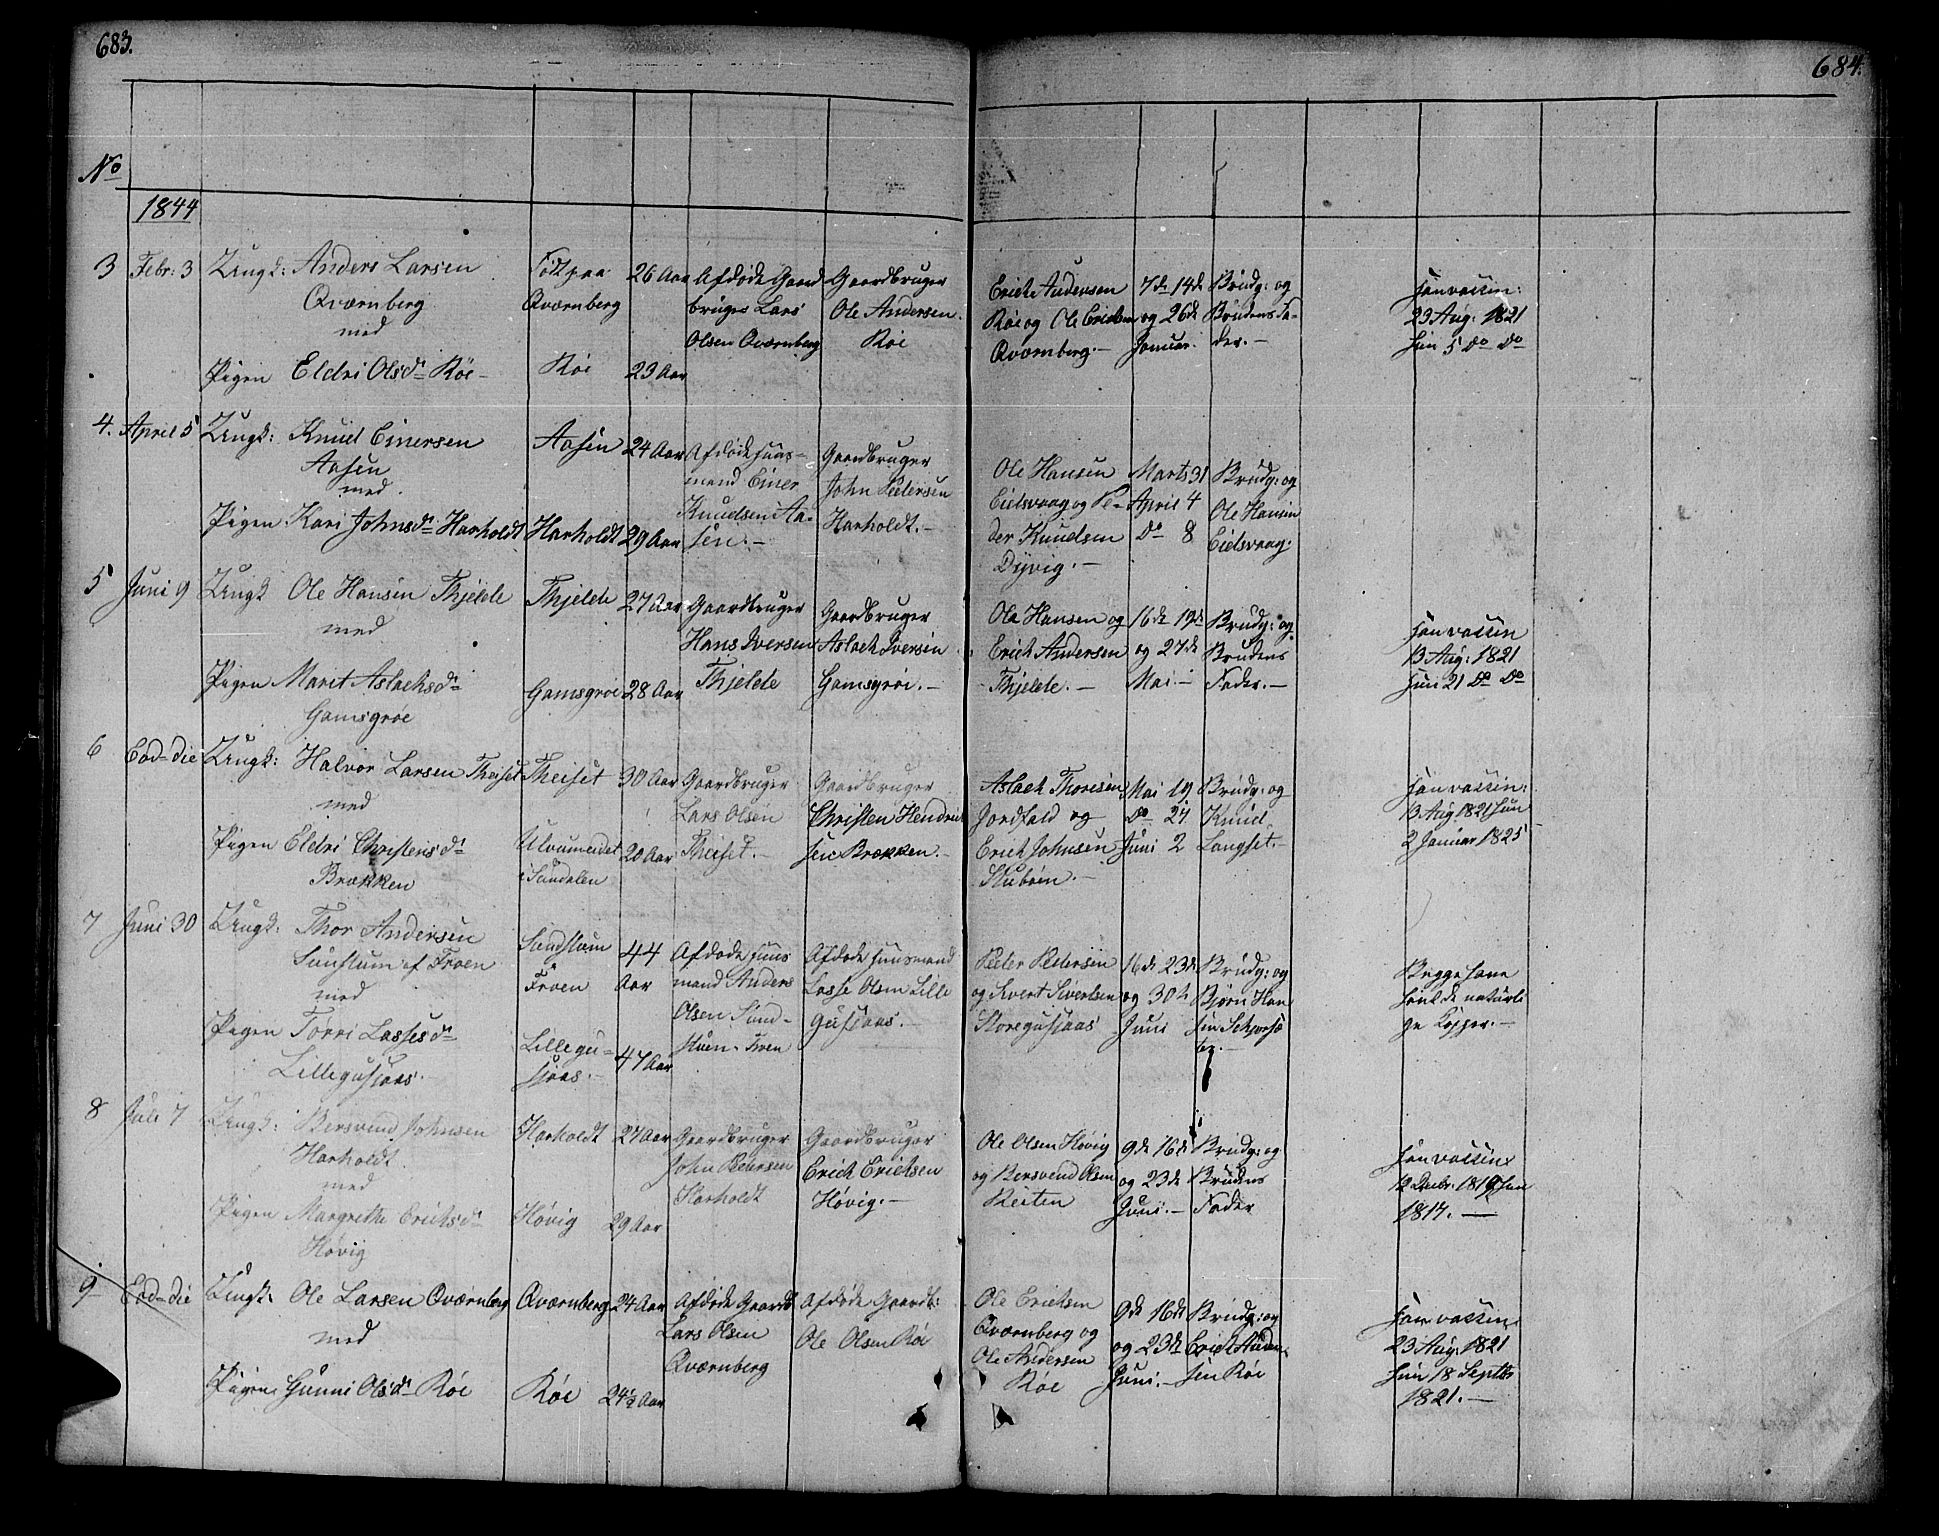 683.
684.
No
1844
3 Febr: 3 Ungk: Anders Larsen Qværnberg
med
Pigen Eldri Olsdr Röe
Födt paa Qværnberg
Röe
26 Aar
23 Aar
Afdöde Gaardbruger Lars Olsen Qværnberg
Gaardbruger Ole Andersen Röe
Erich Andersen Röe og Ole Erichsen Qværnberg.
7de 14de og 26de Januar.
Brudg: og Brudens Fader.
han vaccin: 23 Aug: 1821 hun 5 Do Do
4. April 5 Ungk: Knud Einersen Aasen
med.
Pigen Kari Johnsdr Harholdt
Aasen
Harholdt
24 Aar
29 Aar
Afdöde Huusmand Einer Knudsen Aasen.
Gaardbruger John Pedersen Harholdt.
Ole Hansen Eidsvaag og Peder Knudsen Dyvig.
Marts 31 April 4 Do 8
Brudg: og Ole Hansen Eidsvaag:
5 Juni 9 Ungk Ole Hansen Thjelde
med
Pigen Marit Aslachsdr Gamsgröe
Thjelde
Gamsgröe
27 Aar
28 Aar
Gaardbruger Hans Iversen Thjelde
Gaardbruger Aslach Iversen Gamsgröe.
Ole Hansen og Erich Andersen Thjelde.
16de 19de og 27de Mai
Brudg: og Brudens Fader.
han vaccin 13 Aug: 1821 hun 21 Do Do
6 Eod-die Ungk: Halvor Larsen Theiset
med
Pigen Eldri Christensdr Brækken
Theiset
i Sundalen
30 Aar
20 Aar
Gaardbruger Lars Olsen Theiset.
Gaardbruger Christen Hendrichsen Brækken.
Aslach Thoresen Jordfald og Erich Johnsen Stuböen.
Mai 19 Do 27 Juni 2
Brudg: og Knud Langset.
han vaccin: 13 Aug 1821 hun 2 Januar 1825
7 Juni 30 Ungk: Thor Andersen af Froen
med
Pigen Torri Lassesdr Lillegusjaas.
Froen
Lillegusjaas.
44 Aar
47 Aar
Afdöde Huusmand Anders Olsen
Afdöde Huusmand Lasse Olsen Lillegusjaas.
Peder Pedersen og Sivert Sivertsen Storegusjaas
16de 23de og 30te Juni
Brudg: og Björn Hansen
Begge have havt de naturlige Kopper.
8 Juli 7 Ungk: Bersvend Johnsen Harholdt
med
Pigen Margrethe Erichsdr Hövig
Harholdt
Hövig
27 Aar
29 Aar
Gaardbruger John Pedersen Harholdt
Gaardbruger Erich Erichsen Hövig.
Ole Olsen Hövig og Bersvend Olsen Reiten
9de 16de og 23de Juni.
Brudg: og Brudens Fader
han vaccin: 1819 hun 1817.
9 Eod-die Ungk: Ole Larsen Qværnberg
med
Pigen Gunni Olsdr Röe
Qværnberg
Röe
24 Aar
24½ Aar
Afdöde Gaardb: Lars Olsen Qværnberg
Afdöde Gaardb: Ole Olsen Röe
Ole Erichsen Qværnberg og Ole Andersen Röe
9de 16de og 23de Juni.
Brudg: og Erich Andersen Röe
han vaccin: 23 Aug: 1821 hun 18 Septbr 1821.